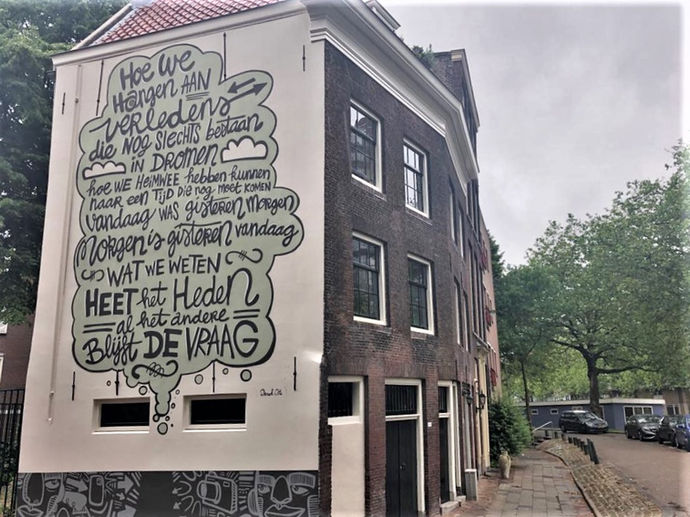 HOE WE
HANGEN AAN
VERLEDENS
die NOG Slechts bestaan
in DROMEN
hoe WE HEIMWEE hebben kunnen
naar een TIJD die nog moet komen
Vandaag WAS gisteren Morgen
Morgen is gisteren vandaag
WAT WE WETEN
HEET het Heden
al het andere
Blijft DE VRAAG